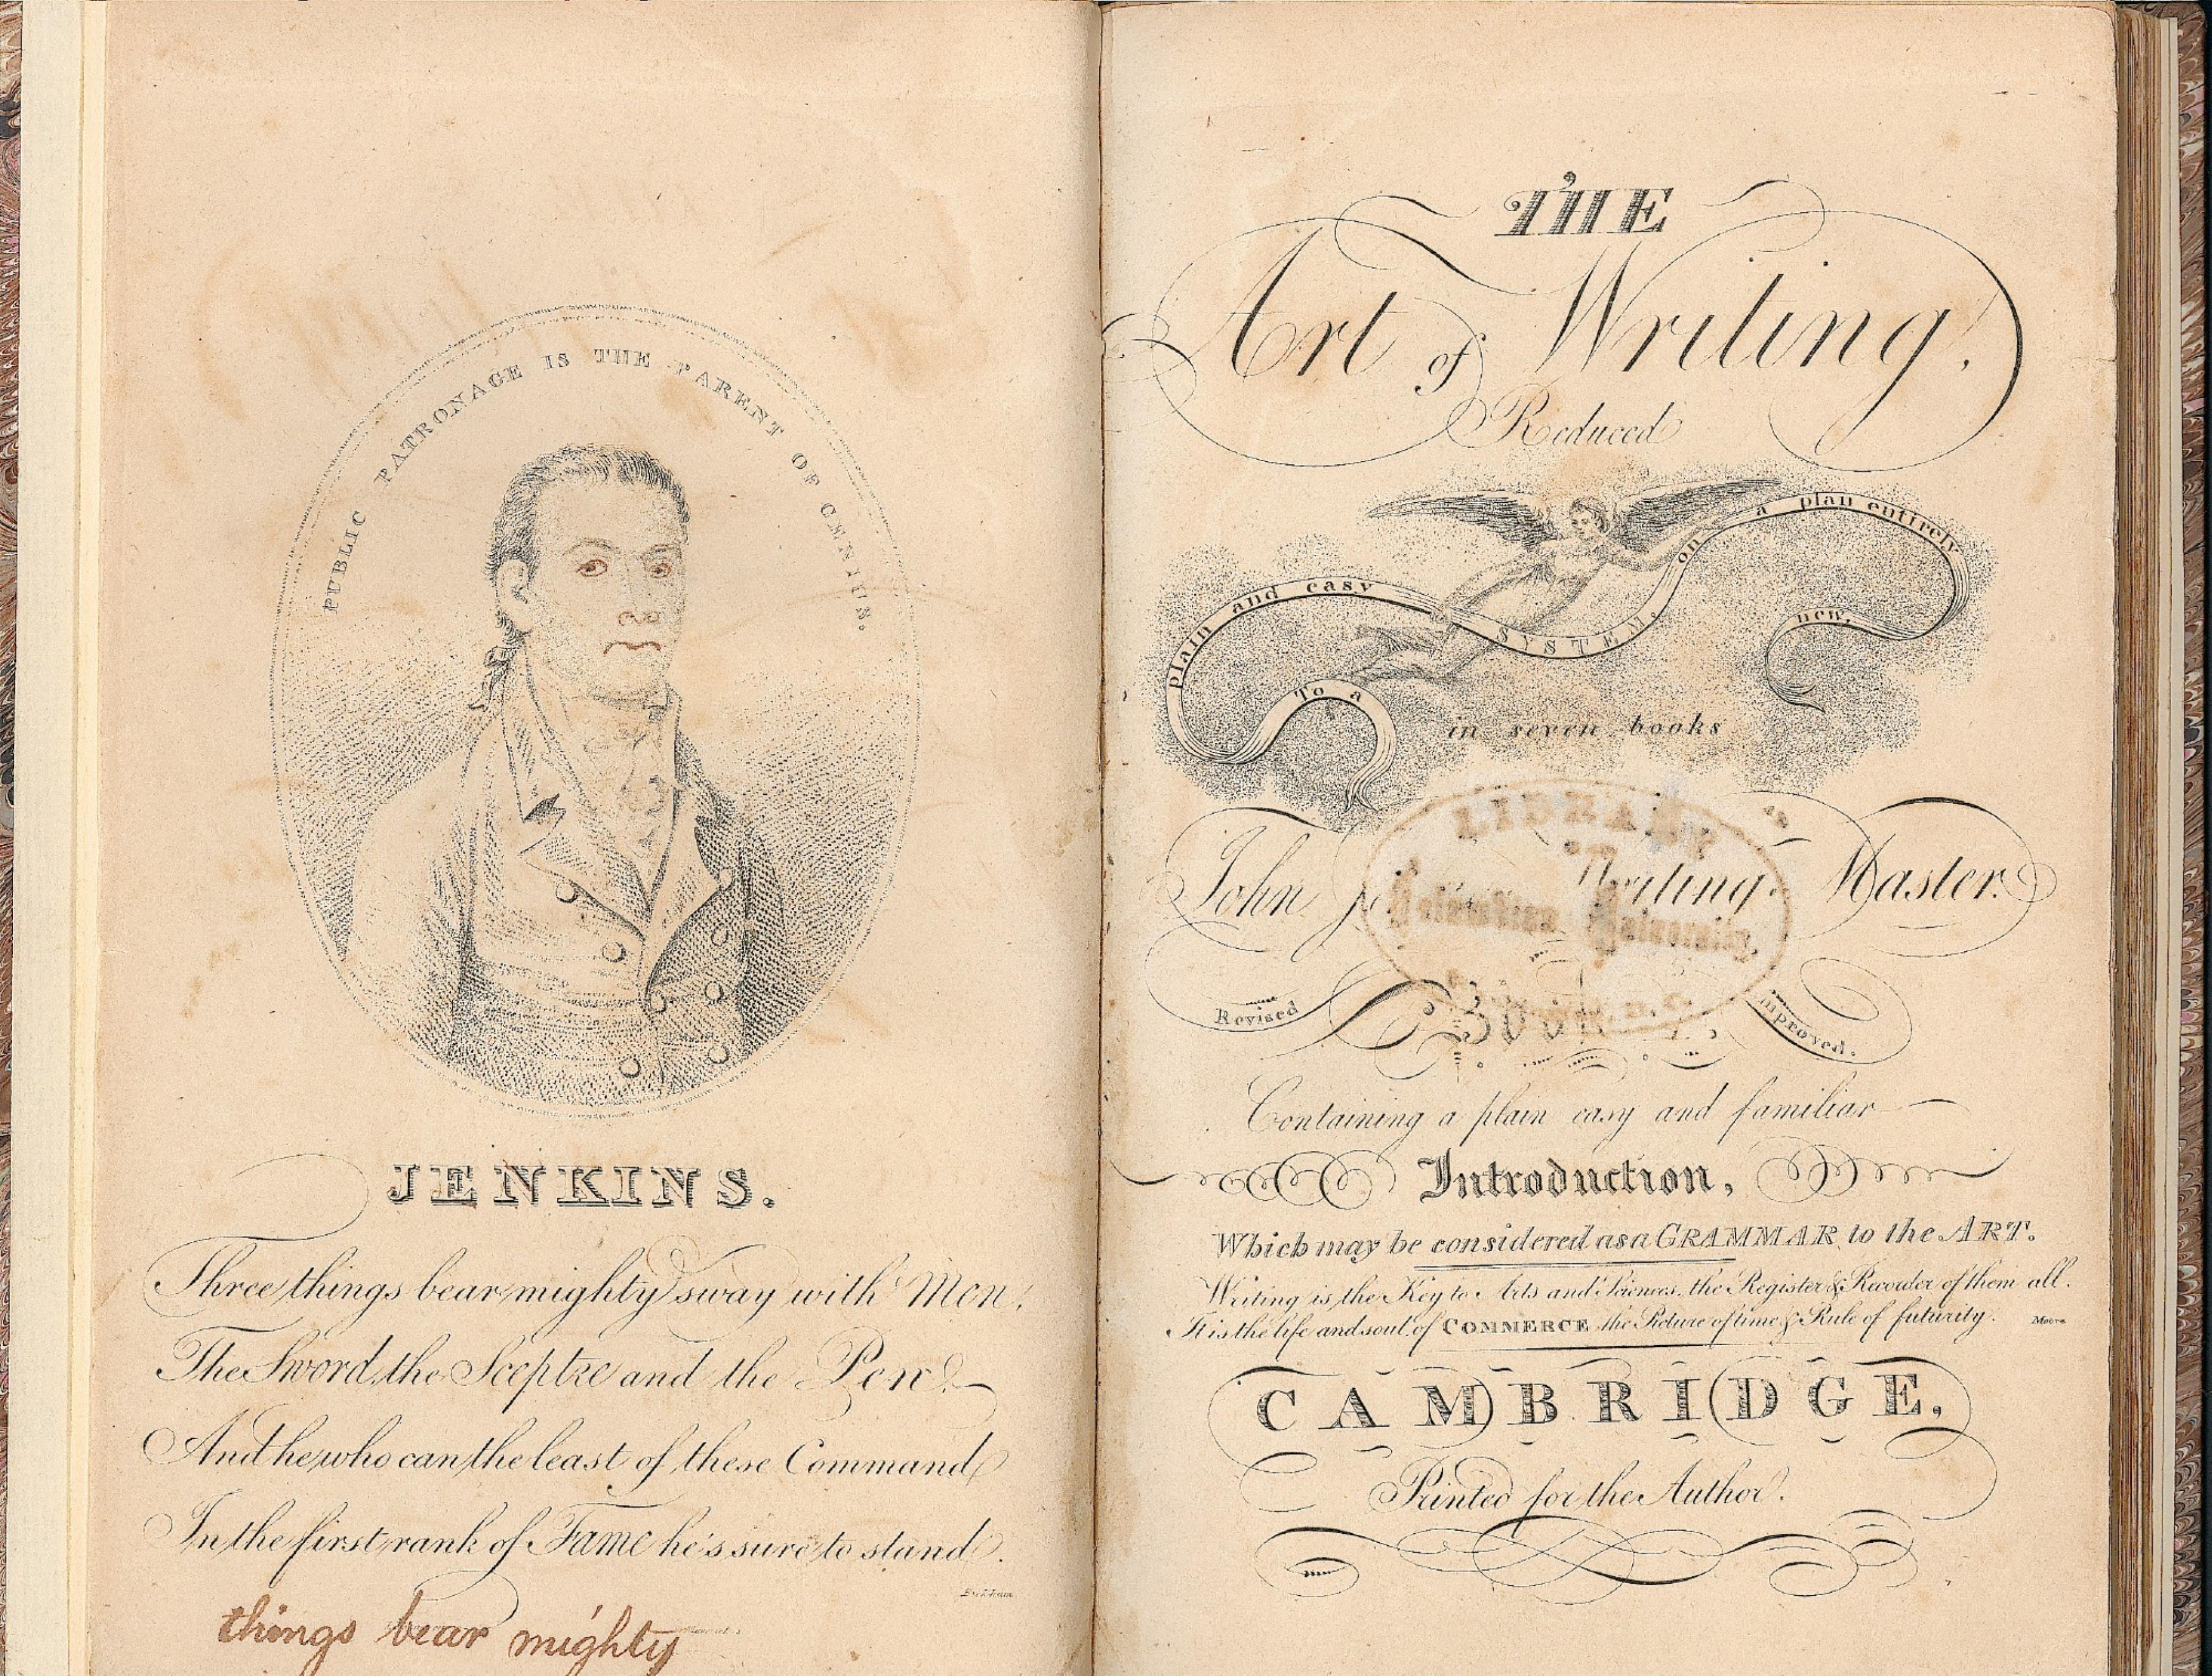 PUBLIC PATRONAGE IS THE PARENT OF GENIUS.
JENKINS.
Three things bear mighty sway with Men,
The Sword, the Sceptre and the Pen;
And he who can the least of these Command
In the first rank of Fame he's sure to stand.
things bear mighty
THE
Art of Writing,
Reduced
To a plain and easy SYSTEM, on a plan entirely new,
in seven books
John Writing Master.
LIBRARY
Revised Improved.
Containing a plain easy and familiar
Introduction,
Which may be considered as a GRAMMAR to the ART.
Writing is the Key to Arts and Sciences, the Register & Recorder of them all.
It is the life and soul of COMMERCE the Picture of time & Rule of futurity. Moore
CAMBRIDGE,
Printed for the Author.